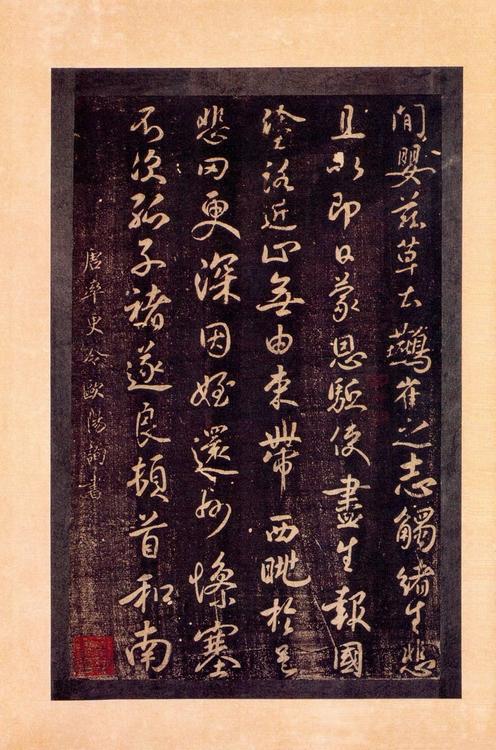 間嬰茲草土鷰雀之志觸緒生悲
且以即日蒙恩驅使盡生報國
塗路近止無由束帶西眺於邑
悲罔更深因姪還州慘塞
不次孤子褚遂良頓首和南
唐率更令歐陽詢書